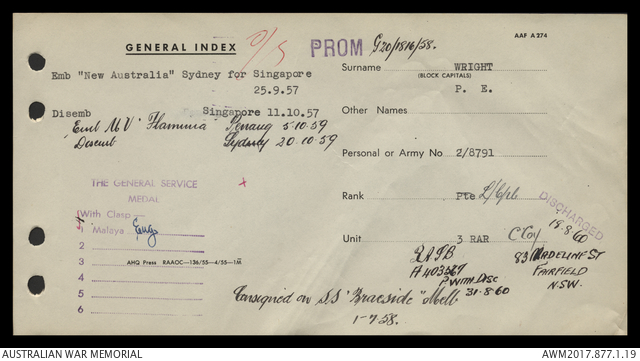 AAF A 274
GENERAL INDEX
PROM G20/1816/58.
Emb "New Australia" Sydney for Singapore
25.9.57
Disemb Singapore 11.10.57
Emb M V' Flaminia' Penang 5-10-59
Disemb Sydney 20.10.59
THE GENERAL SERVICE
MEDAL
With Clasp
1 Malaya
2
3
4
5
6
AHQ Press RAAOC—136/55—4/55—1M
Surname WRIGHT
(BLOCK CAPITALS)
P. E.
Other Names
Personal or Army No 2/8791
Rank Pte L/Cpl
DISCHARGED
19.8.60
Unit 3 RAR C Coy
83 MADELINE ST
FAIRFIELD
N.S.W.
P. WITH DISC
31.8.60
Consigned on S.S "Braeside" Melb
1-7-58.
AUSTRALIAN WAR MEMORIAL
AWM2017.877.1.19